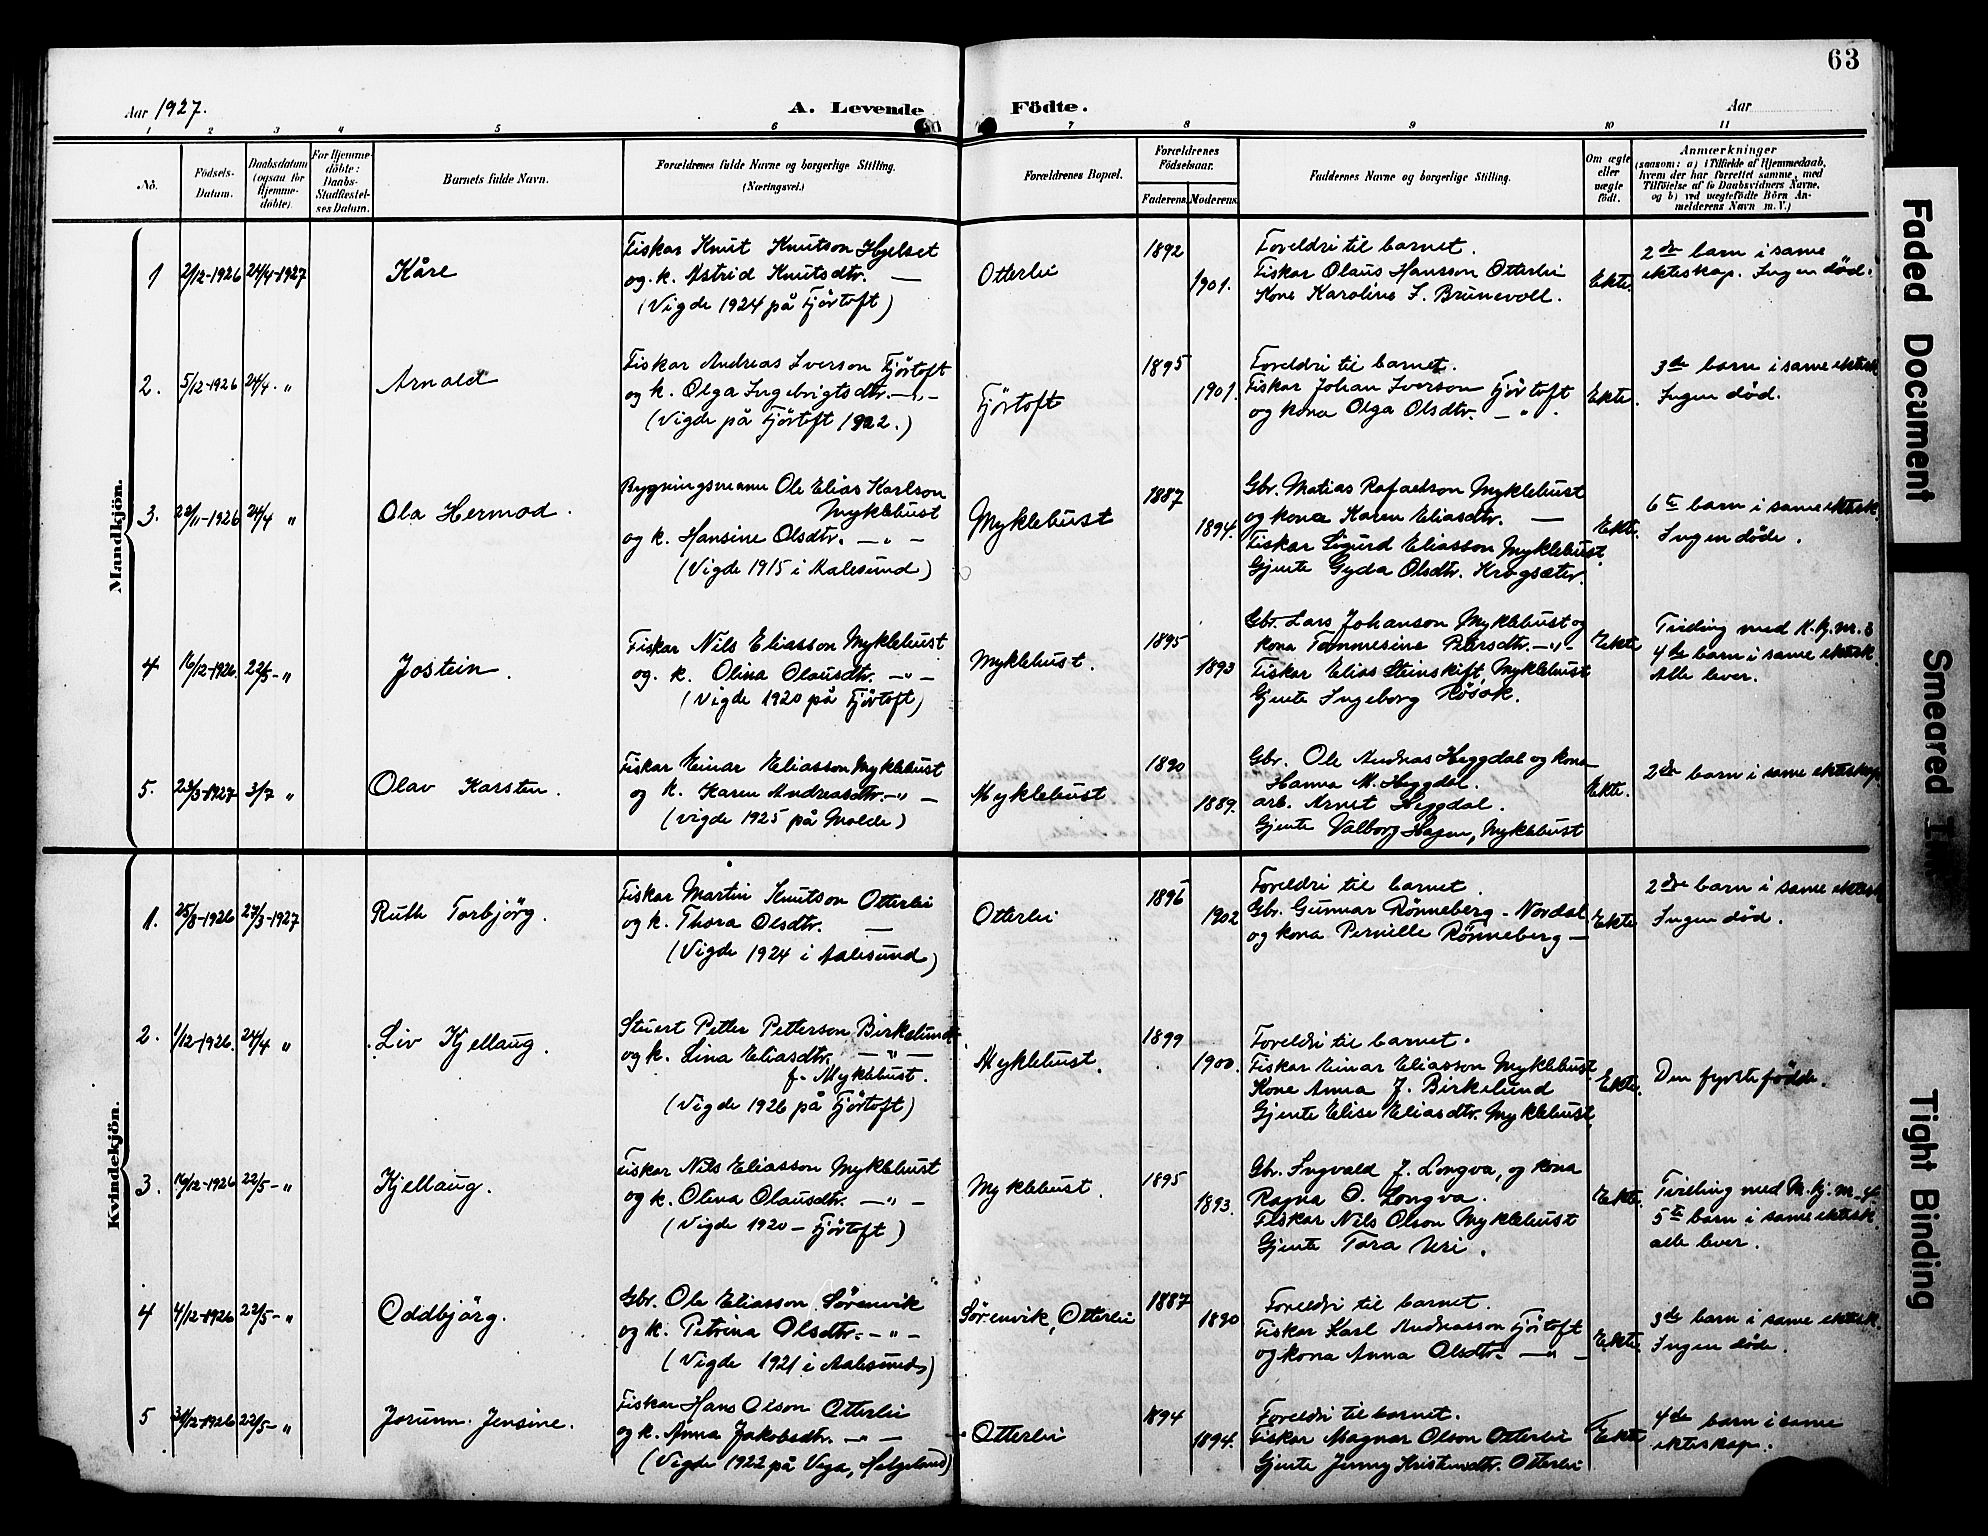 63
Aar 1927.
A. Levende Födte.
Aar
1 2 3 4 5 6 7 8 9 10 11
No.
Födsels-
Datum.
Daabsdatum
(ogsaa for
Hjemme-
döbte).
For Hjemme-
döbte:
Daabs-
Stadfæstel-
ses Datum.
Barnets fulde Navn.
Forældrenes fulde Navne og borgerlige Stilling.
(Næringsvei.)
Forældrenes Bopæl.
Forældrenes
Födselsaar.
Faderens. Moderens.
Faddernes Navne og borgerlige Stilling.
Om ægte
eller
uægte
födt.
Anmærkninger
(saasom: a) i Tilfælde af Hjemmedaab,
hvem der har forrettet samme, med
Tilföielse af to Daabsvidners Navne,
og b) ved uægtefödte Börn An-
melderens Navn m. V.)
Mandkjön.
1 2/12-1926 24/4-1927
Kåre
Fiskar Knut Knutson Hjelset
og k. Astrid Knutsdtr. —
(Vigde 1924 på Fjörtoft)
Otterlei
1892
1901.
Foreldri til barnet.
Fiskar Olaus Hansson Otterlei
Kone Karoline I. Brunevoll.
Ekte.
2dre barn i same
ekteskap. Ingen död.
2. 5/12-1926 24/4. "
Arnold
Fiskar Andreas Iverson Fjörtoft
og k. Olga Ingebrigtsdtr. — " —
(Vigde på Fjörtoft 1922.)
Fjörtoft
1895
1901.
Foreldri til barnet.
Fiskar Johan Iverson Fjörtoft
og kona Olga Olsdtr. — " .
Ekte.
3de barn i same ektesk.
Ingen död.
3. 22/11-1926 24/4 "
Ola Hermod.
Bygningsmann Ole Elias Karlson
Myklebust
og k. Hansine Olsdtr. — " —
(Vigde 1915 i Aalesund)
Myklebust
1887
1894.
Gbr. Matias Rafaelson Myklebust
og kona Karen Eliasdtr. —
Fiskar Sigurd Eliasson Myklebust.
Gjente Gyda Olsdtr. Krogsæter.
Ekte.
6te barn i same ektesk.
Ingen döde.
4 16/12-1926. 22/5 - "
Jostein.
Fiskar Nils Eliasson Myklebust
og. k. Olina Olausdtr. — " —
(Vigde 1920 på Fjörtoft)
Myklebust.
1895
1893
Gbr. Lars Johanson Myklebust og
kona Tommesine Petersdtr. — " —
Fiskar Elias Steinskift, Myklebust
Gjente Ingeborg Rösok.
Ekte
Tvilling med K.kj. nr. 3
4de barn i same ektesk.
Alle lever.
5. 23/3-1927 3/7 "
Olav Karsten.
Fiskar Einar Eliasson Myklebust
og k. Karen Andreasdtr. — " —
(vigde 1925 på Molde)
Myklebust
1890
1889.
Gbr. Ole Andreas Heggdal og kona
Hanna M. Heggdal.
arb. Arnet Heggdal.
Gjente Valborg Hagen, Myklebust
Ekte.
2dre barn i same ekteskap.
Kvindekjön.
1. 25/8-1926 27/3-1927
Ruth Torbjörg.
Fiskar Martin Knutson Otterlei
og k. Thora Olsdtr. —
(Vigde 1924 i Aalesund)
Otterlei
1896
1902
Foreldri til barnet.
Gbr. Gunnar Rönneberg - Nordal
og kona Pernille Rönneberg —
Ekte
2dre barn i same ektesk.
Ingen död.
2. 1/12-1926. 24/4 "
Liv Kjellaug.
Stuert Petter Petterson Birkelund
og k. Lina Eliasdtr. — " —
f. Myklebust.
(Vigde 1926 på Fjörtoft)
Myklebust.
1899
1900.
Foreldri til barnet.
Fiskar Einar Eliasson Myklebust
Kone Anna J. Birkelund
Gjente Elise Eliasdtr. Myklebust
Ekte.
Den fyrste födde.
3. 16/12-1926 22/5 - "
Kjellaug.
Fiskar Nils Eliasson Myklebust
og k. Olina Olausdtr. — " —
(Vigde 1920 - Fjörtoft)
Myklebust.
1895
1893.
Gbr. Ingvald J. Longva, og kona
Ragna O. Longva.
Fiskar Nils Olson Myklebust
Gjente Tora Uri.
Ekte.
Tvilling med M.kj. nr. 4
5te barn i same ektesk.
alle lever.
4 4/12-1926 22/5 - "
Oddbjörg.
Gbr. Ole Eliasson Sörenvik
og k. Petrina Olsdtr. — " —
(Vigde 1921 i Aalesund)
Sörenvik, Otterlei
1887
1890
Foreldri til barnet.
Fiskar Karl Andreasson Fjörtoft
og kona Anna Olsdtr. — " —
Ekte.
3de barn i same ektesk.
Ingen döde.
5 31/12-1926 22/5 - "
Jorunn Jensine.
Fiskar Hans Olson Otterlei
og k. Anna Jakobsdtr. — " —
(Vigde 1922 på Vega, Helgeland)
Otterlei
1894
1894.
Foreldri til barnet.
Fiskar Magnar Olson Otterlei
Gjente Jenny Kristensdtr. Otterlei
Ekte
4de barn i same
ekteskap.
Faded Document
Smeared Ink
Tight Binding